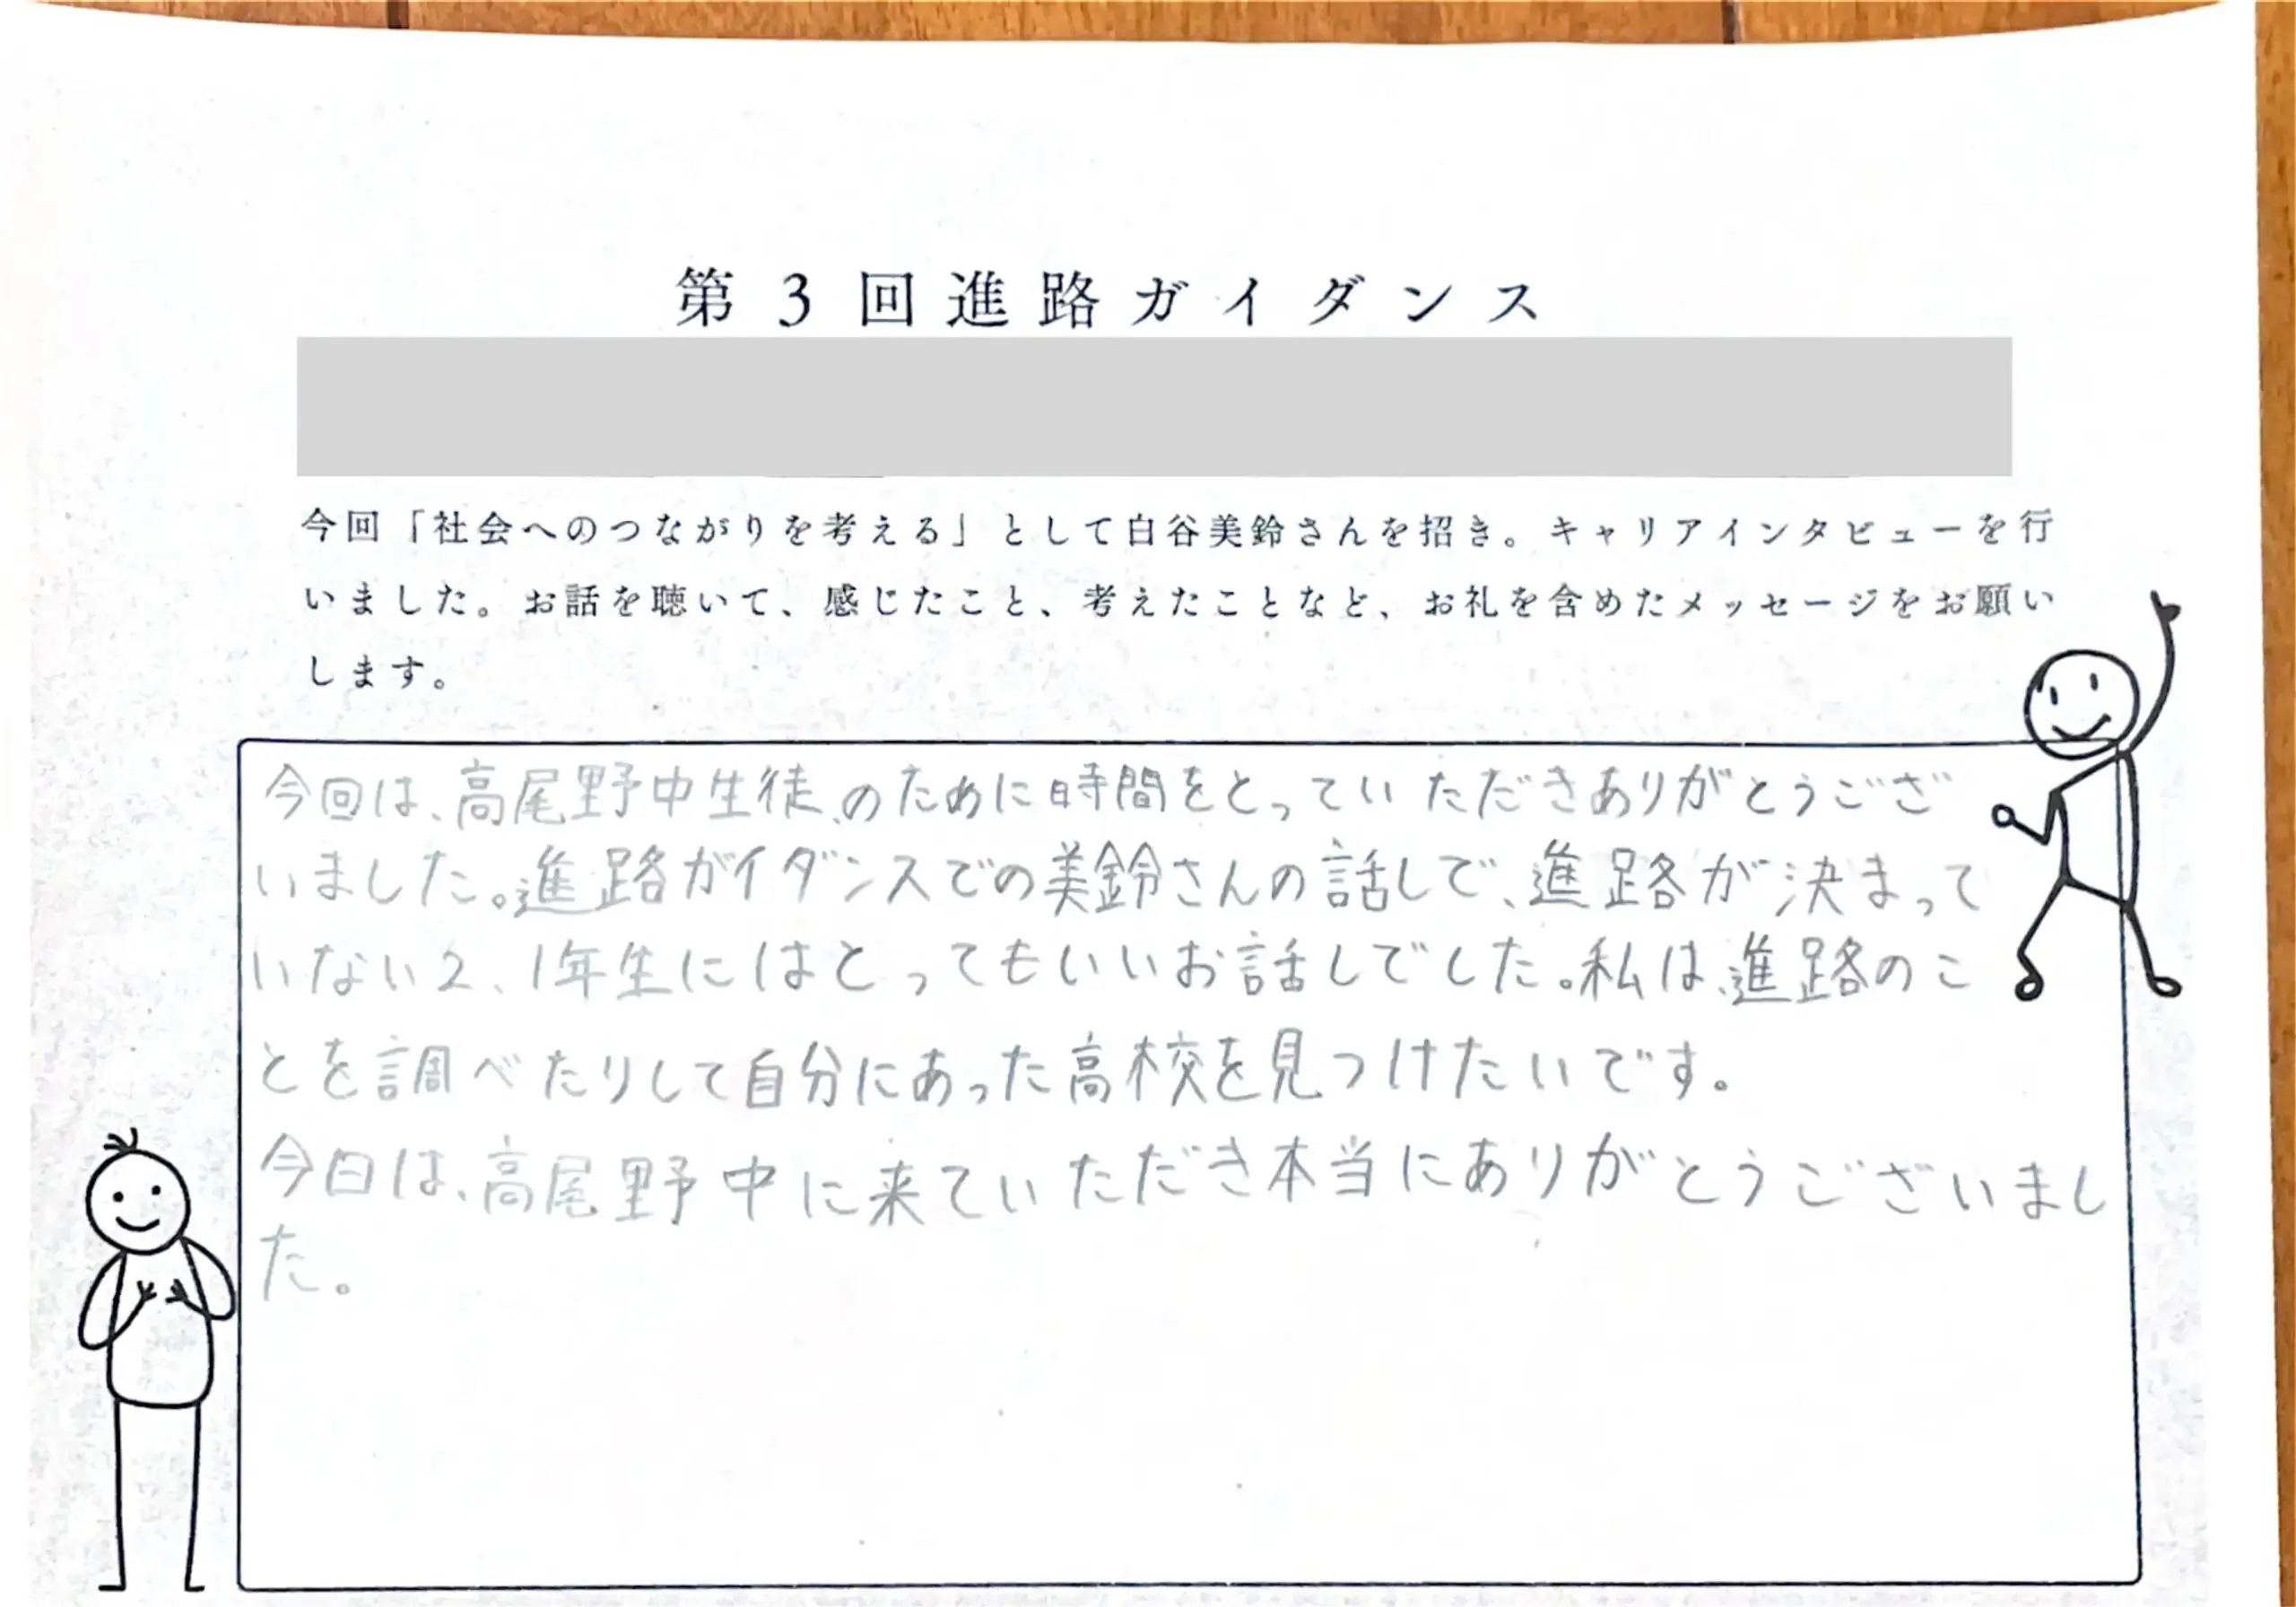 第3回進路ガイダンス
今回「社会へのつながりを考える」として白谷美鈴さんを招き。キャリアインタビューを行
いました。お話を聴いて、感じたこと、考えたことなど、お礼を含めたメッセージをお願い
します。
今回は、高尾野中生徒、のために時間をとっていただきありがとうござ
いました。進路ガイダンスでの美鈴さんの話しで、進路が決まって
いない2、1年生にはとってもいいお話しでした。私は、進路のこ
とを調べたりして自分にあった高校を見つけたいです。
今日は、高尾野中に来ていただき本当にありがとうございまし
た。